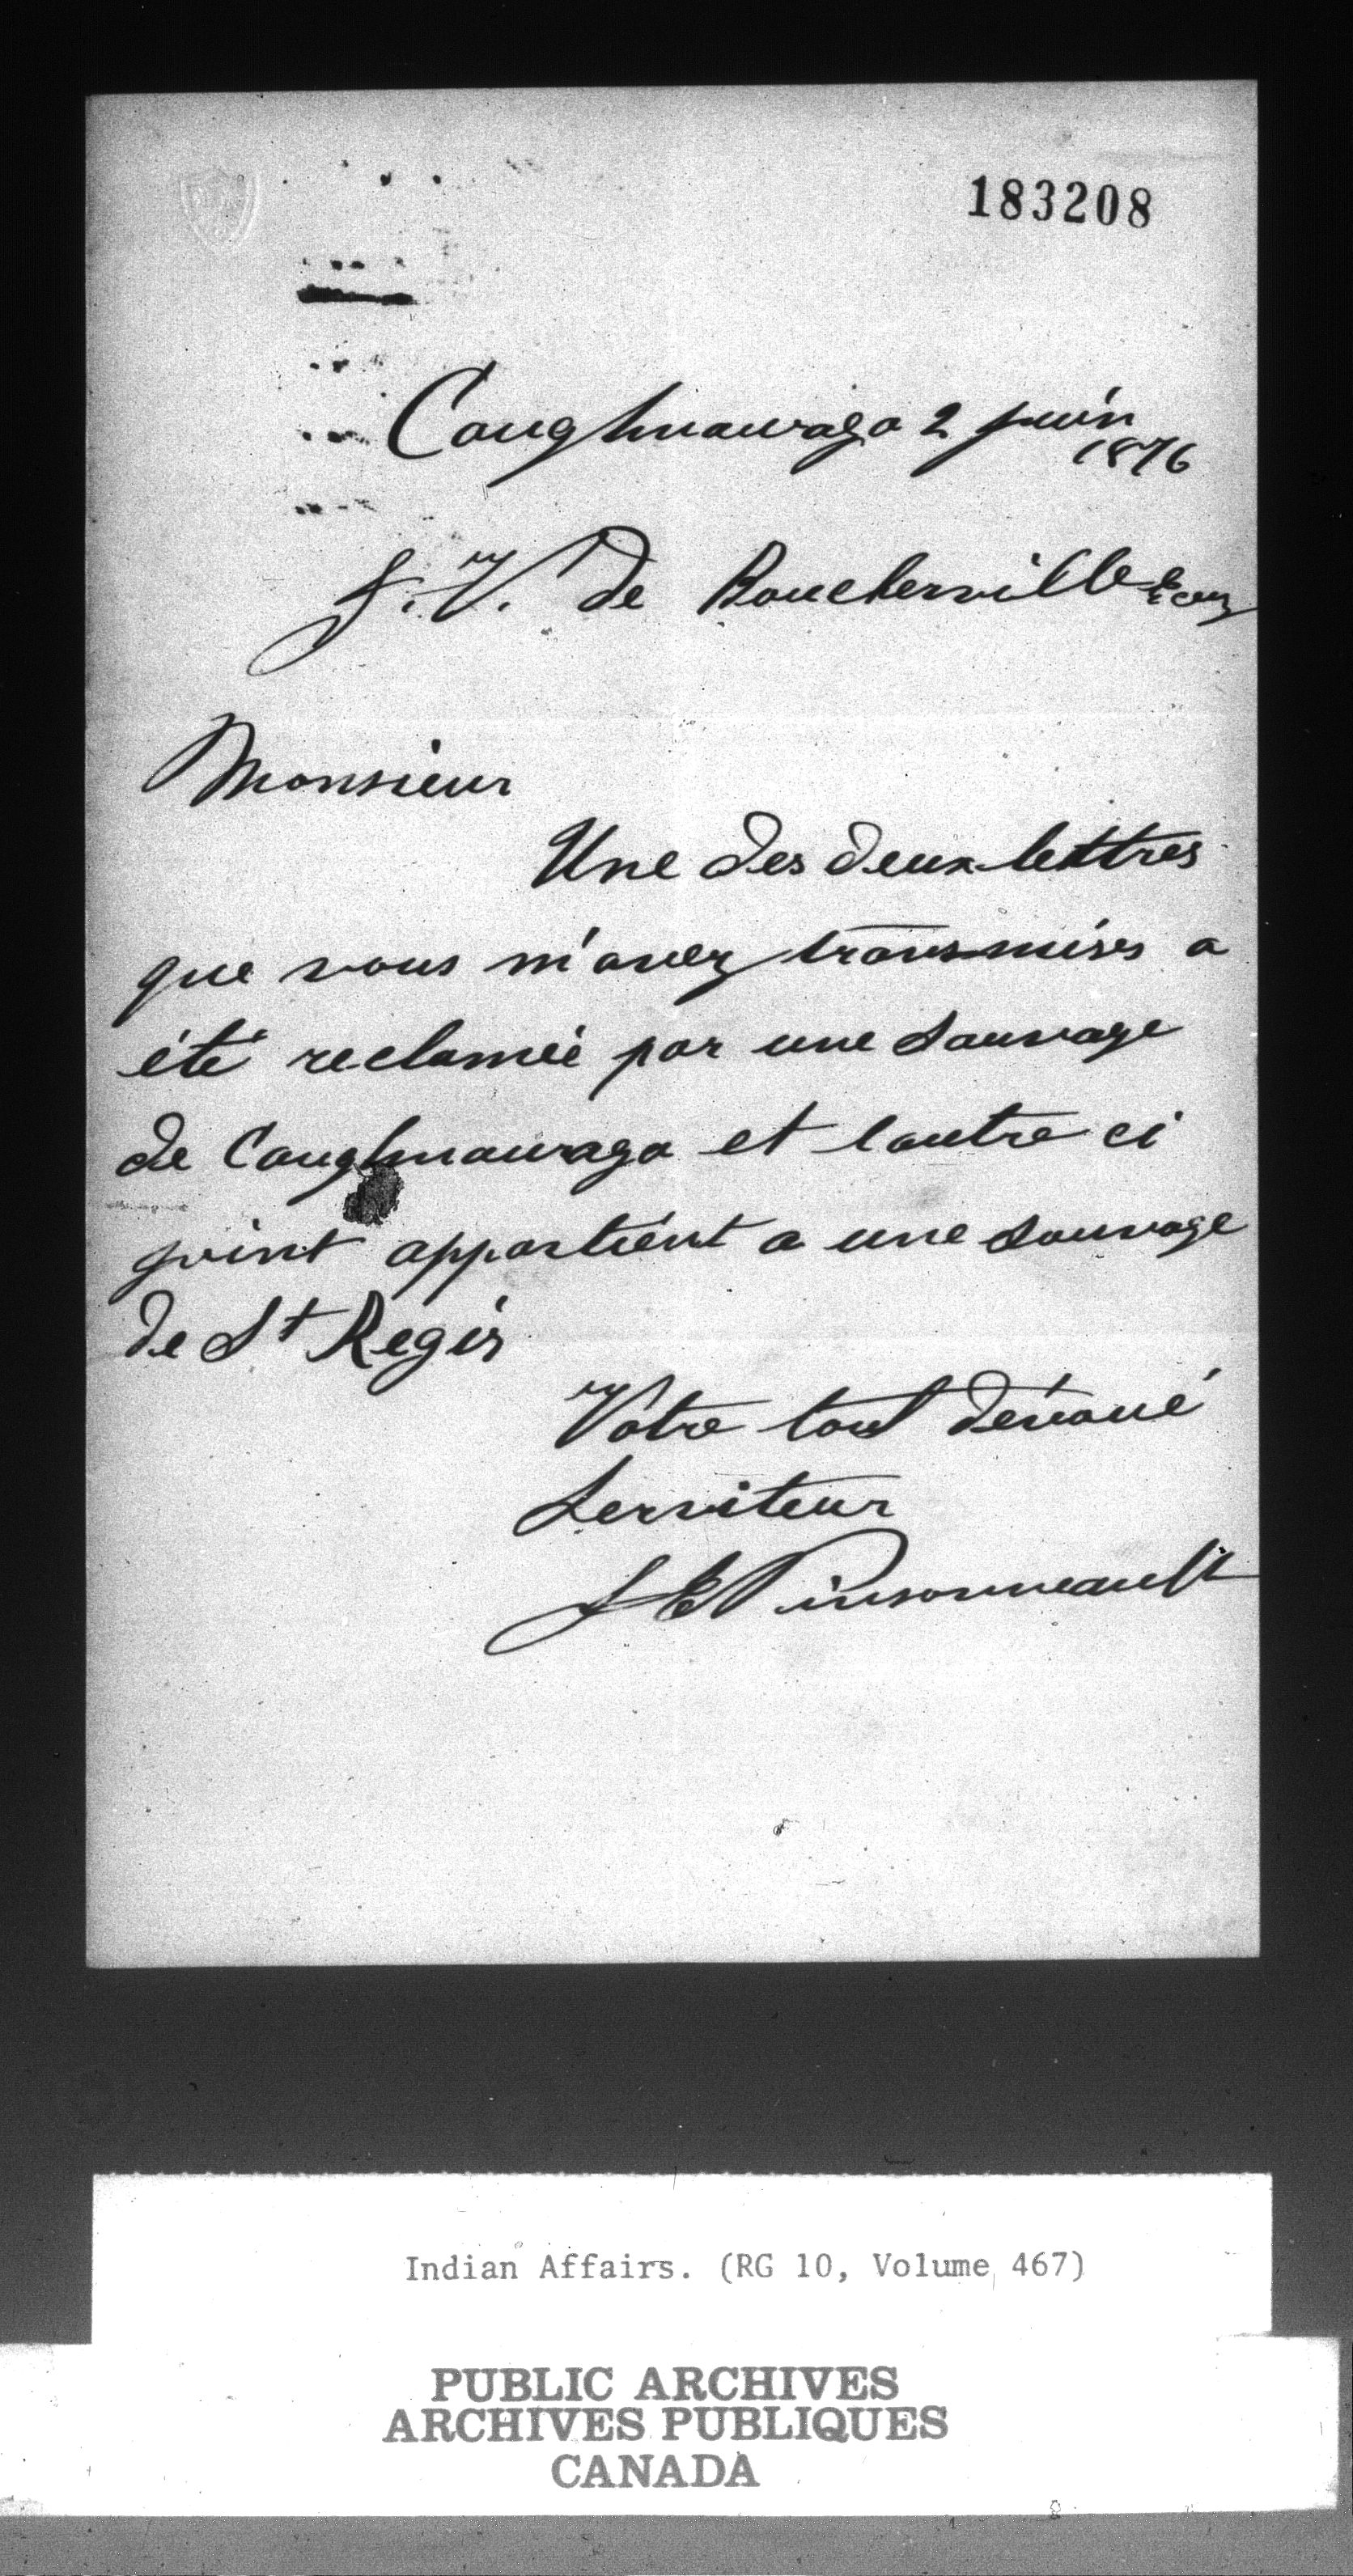 183208
Caughnawaga 2 juin
1876
J. V. de Boucherville Ecuy
Monsieur
Une des deux lettres
que vous m'avez transmises a
été reclamée par une sauvage
de Caughnawaga et lautre ci
joint appartient a une sauvage
de St Regis
Votre tout dévoué
Serviteur
J E Pinsonneault
Indian Affairs. (RG 10, Volume 467)
PUBLIC ARCHIVES
ARCHIVES PUBLIQUES
CANADA